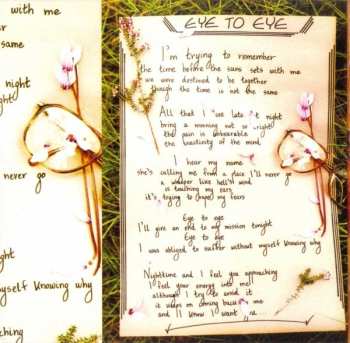 with me
same
night
never go
myself Knowing why
EYE TO EYE
I'm trying to remember
the time before the suns sets with me
we were destined to be together
though the time is not the same
All that I late night
bring a morning out so right
the pain is unbearable
the beastinity of the mind
I hear my name
she's calling me from a place I'll never go
a whisper like hell's wind
is touching my ears
it's trying to my fears
Eye to eye
I'll give an end to my mission tonight
Eye to eye
I was obliged to suffer without myself Knowing why
Nighttime and I feel you approaching
I feel your energy into me
although I try to avoid it
it keeps on coming back me
and I know I want